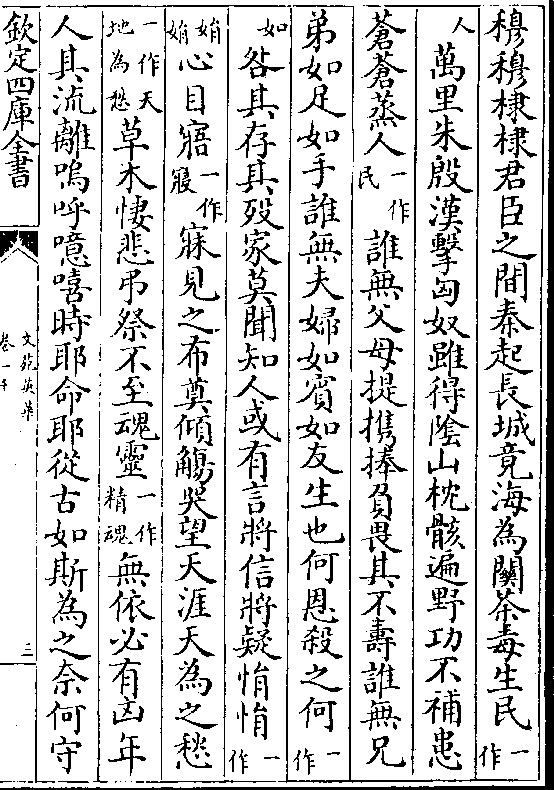 穆穆棣棣君臣之間秦起長城竟海為關荼毒生民一作
人萬里朱殷漢擊匈奴雖得陰山枕骸遍野功不補患
蒼蒼蒸人一作民誰無父母提携捧負畏其不壽誰無兄
弟如足如手誰無夫婦如賓如友生也何恩殺之何一作
如咎其存其殁家莫聞知人或有言將信將疑悁悁一作
娟娟心目寤一作寢寐見之布奠傾觴哭望天涯天為之愁
一作天地為愁草木悽悲弔祭不至魂靈一作精魂無依必有凶年
人其流離嗚呼噫嘻時耶命耶從古如斯為之奈何守
欽定四庫全書
文苑英華
卷一千
三